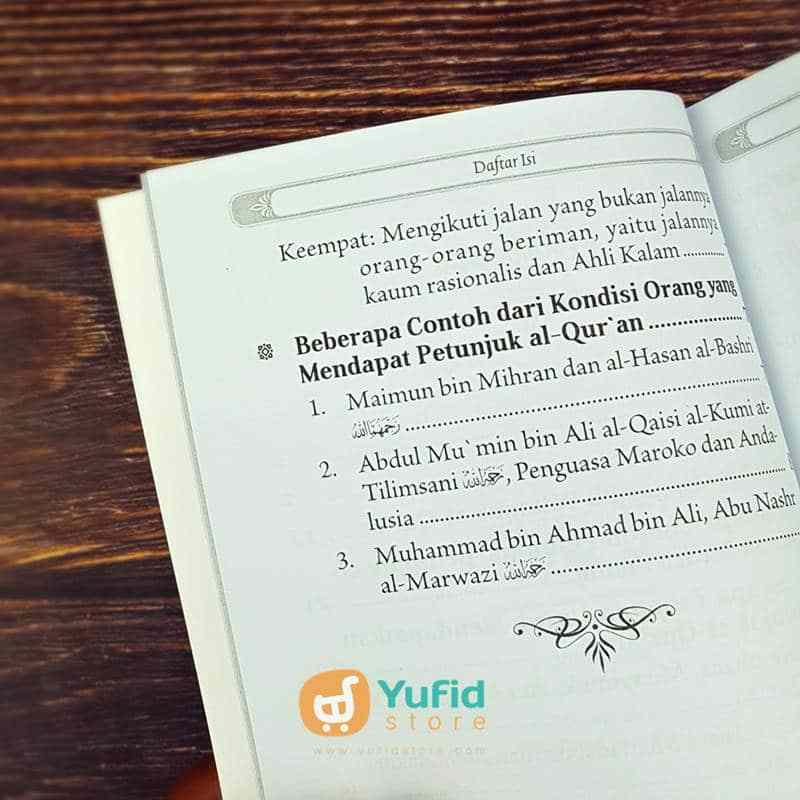 Daftar Isi
Keempat: Mengikuti jalan yang bukan jalannya
orang-orang beriman, yaitu jalannya
kaum rasionalis dan Ahli Kalam............
Beberapa Contoh dari Kondisi Orang yang
Mendapat Petunjuk al-Qur`an ...................
1. Maimun bin Mihran dan al-Hasan al-Bashri
رَحِمَهُمَا اللهُ ..........................................................
2. Abdul Mu`min bin Ali al-Qaisi al-Kumi at-
Tilimsani رَحِمَهُ اللهُ, Penguasa Maroko dan Anda-
lusia ..........................................................
3. Muhammad bin Ahmad bin Ali, Abu Nashr
al-Marwazi رَحِمَهُ اللهُ ........................................
Yufid
store
www.yufidstore.com